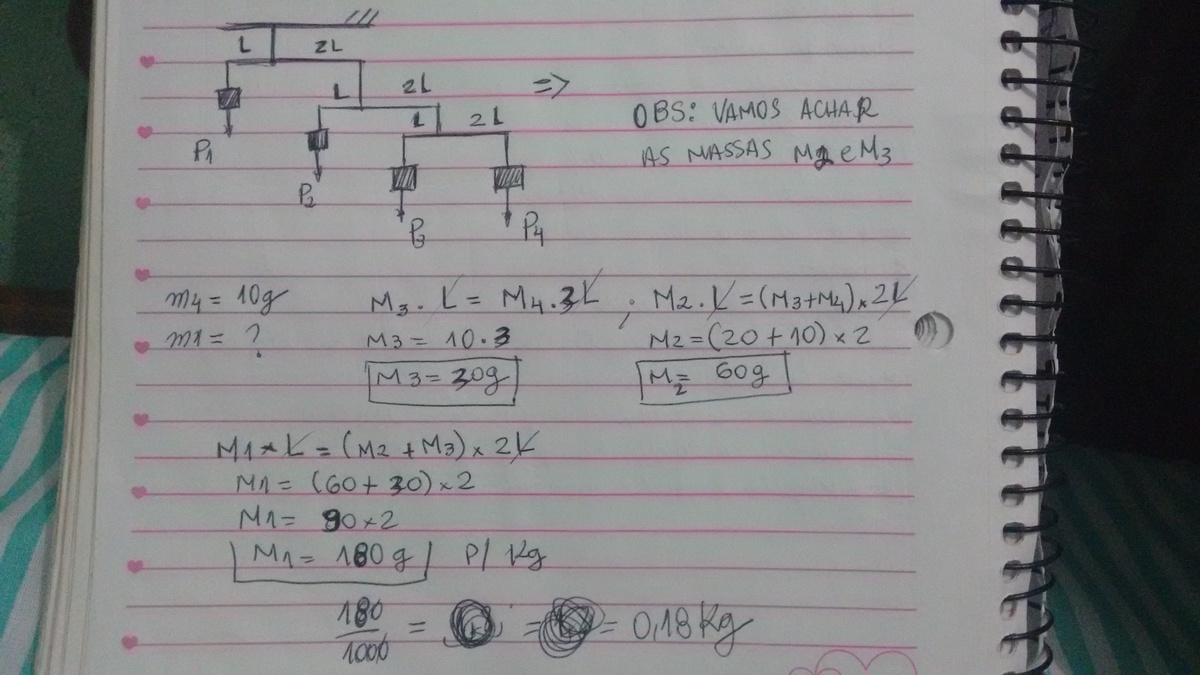 L 2L
L 2L =>
L 2L
P1
P2
P3 P4
OBS: VAMOS ACHAR
AS MASSAS M2 e M3
m4 = 10g
m1 = ?
M3 . L = M4 . 3L ;
M3 = 10 . 3
M3 = 30g
M2 . L = (M3+M4) x 2L
M2 = (20 + 10) x 2
M2 = 60g
M1 * L = (M2 + M3) x 2L
M1 = (60 + 30) x 2
M1 = 90 x 2
M1 = 180g P/ Kg
180/1000 = = = 0,18 Kg